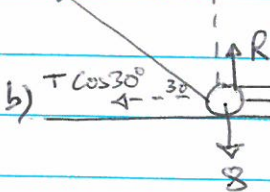 R
b) T Cos30° 30
8